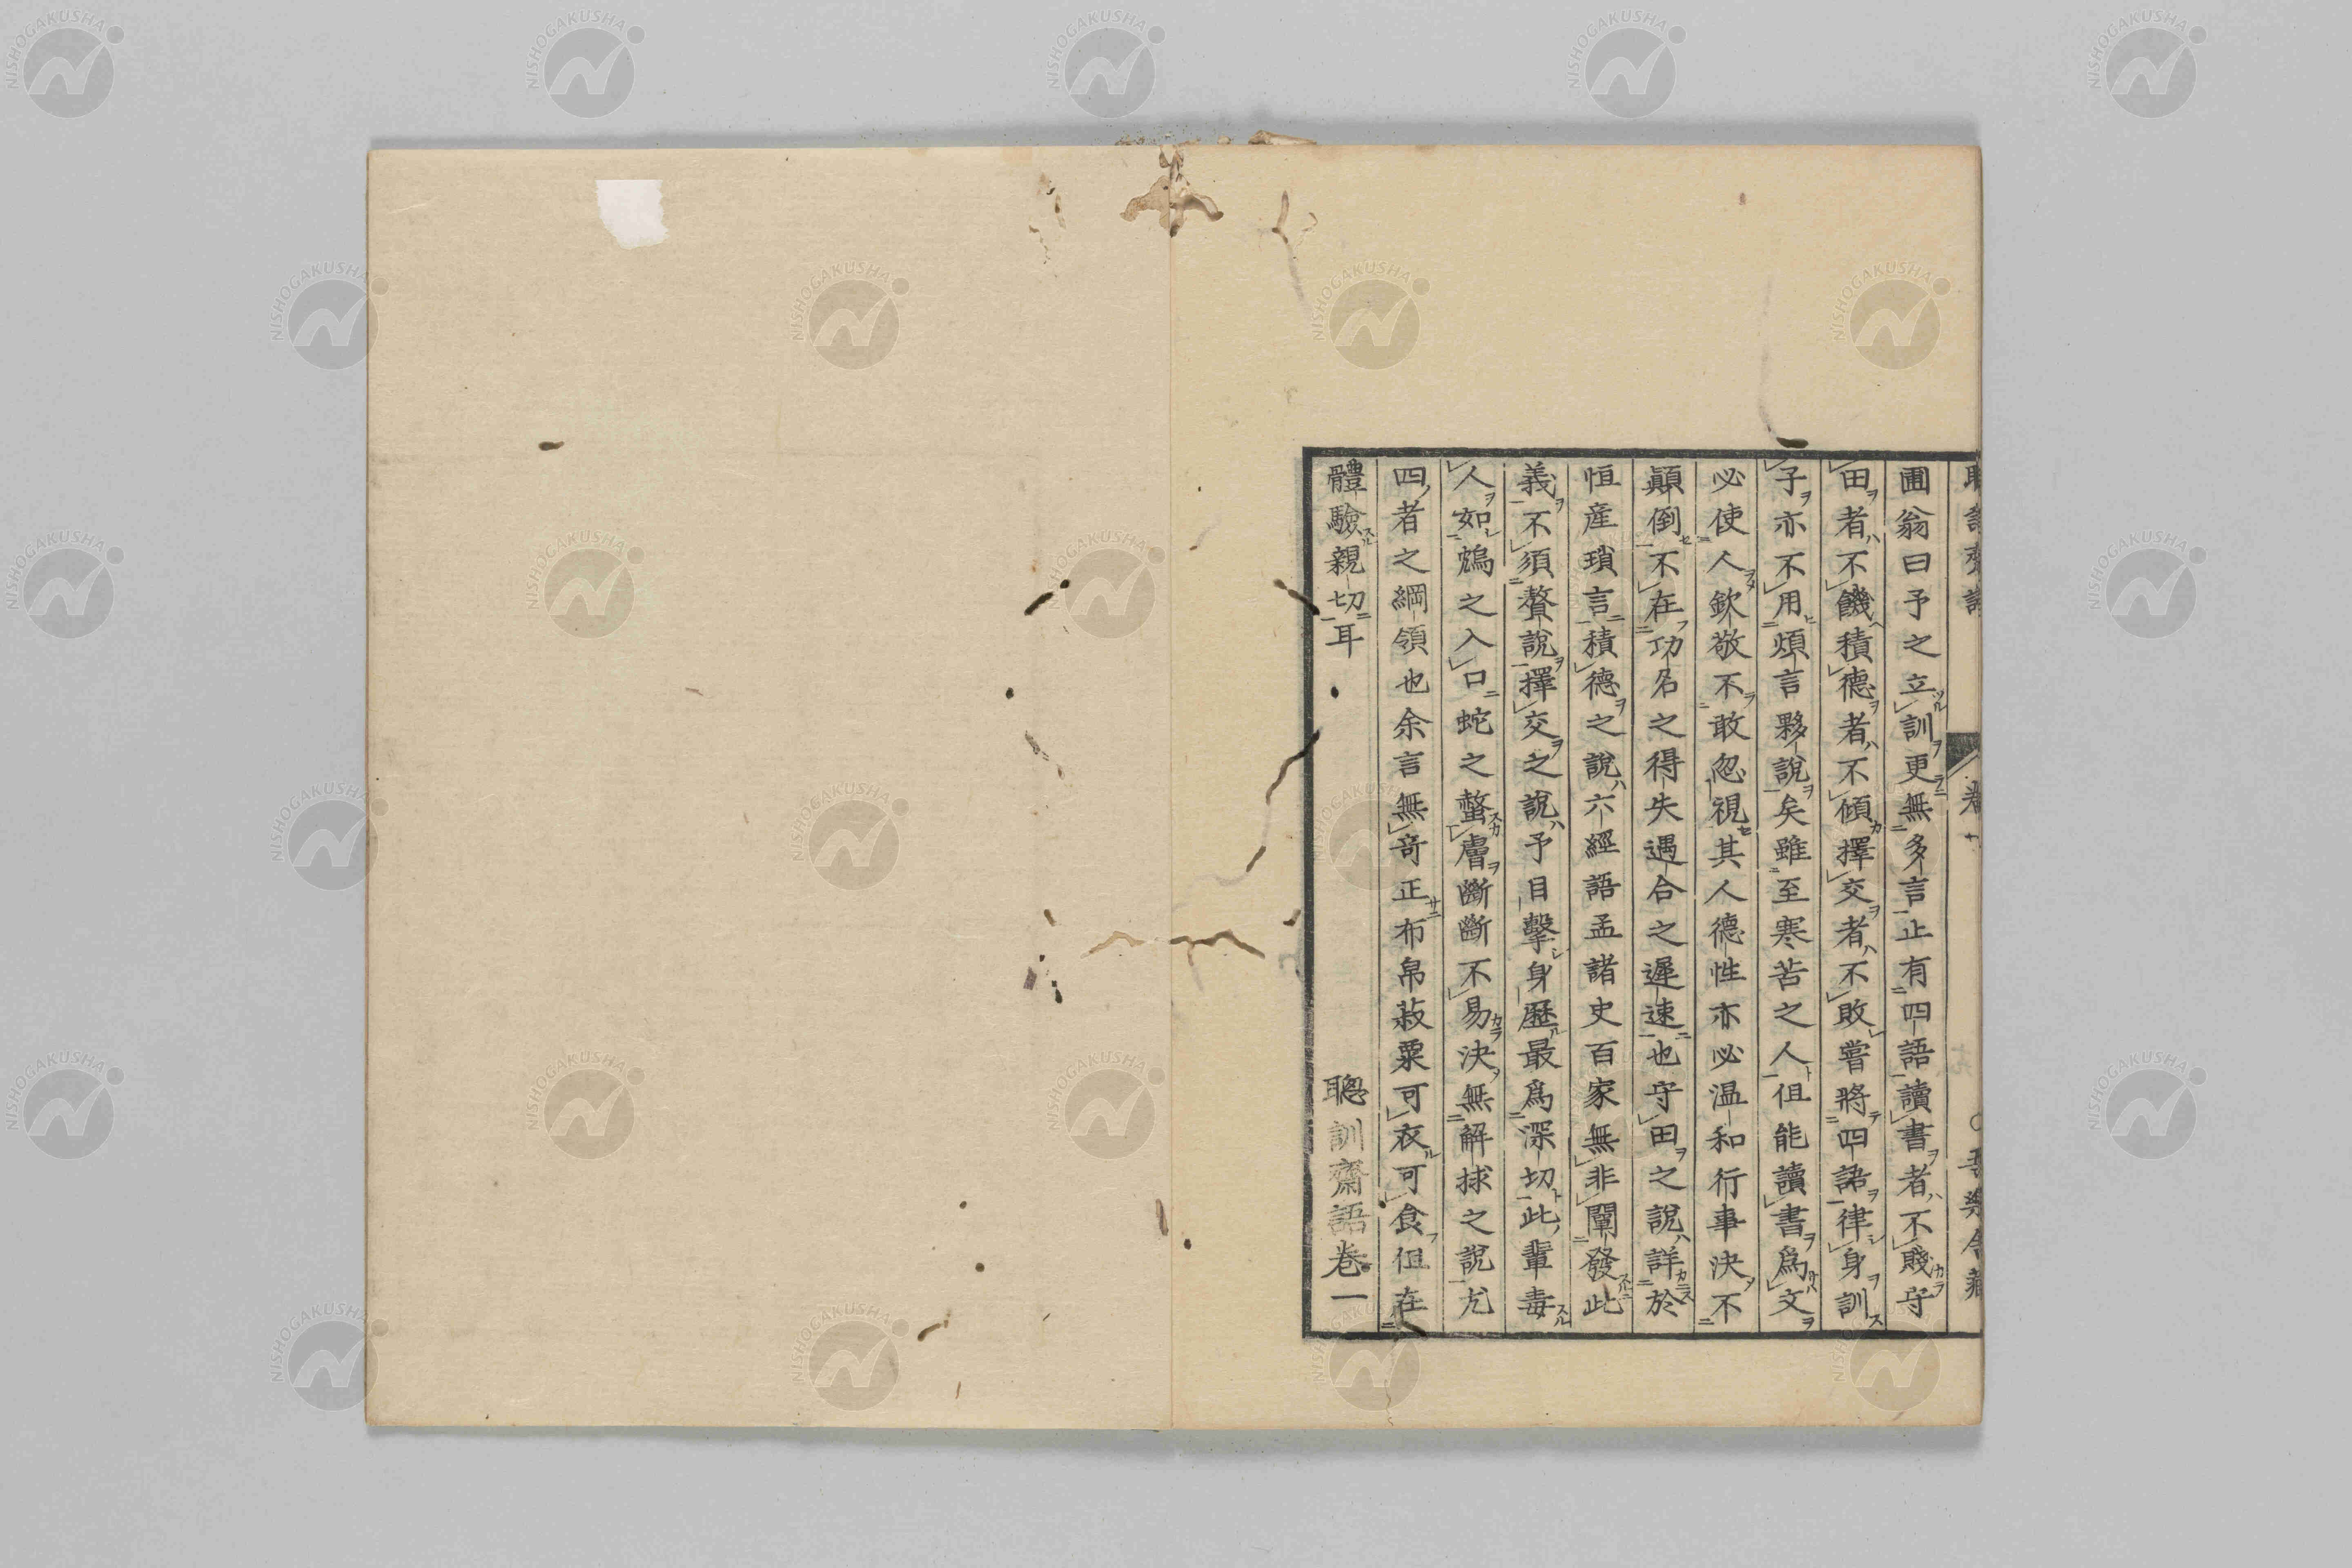 圃翁曰予之立訓更無多言止有四語讀書者不賤守
田者不饑積德者不傾擇交者不敗嘗將四語律身訓
子亦不用煩言夥說矣雖至寒苦之人但能讀書爲文
必使人欽敬不敢忽視其人德性亦必温和行事決不
顚倒不在功名之得失遇合之遲速也守田之說詳於
恒産瑣言積德之說六經語孟諸史百家無非闡發此
義不須贅說擇交之說予目擊身歷最爲深切此輩毒
人如鴆之入口蛇之螫膚斷斷不易決無解捄之說尤
四者之綱領也余言無奇正布帛菽粟可衣可食但在
體驗親切耳
聰訓齋語卷一
NISHOGAKUSHA